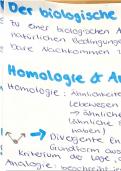 Der biologische
zu einer biologischen A
natürlichen Bedingunge
bare Nachkommen z
Homologie & An
Homologie: Ähnlichkeite
Lebewesen
→ ähnliche
(ähnliche
haben)
Divergente En
Grundform aus
Kriterium der Lage, d
Analogie: beschreibt